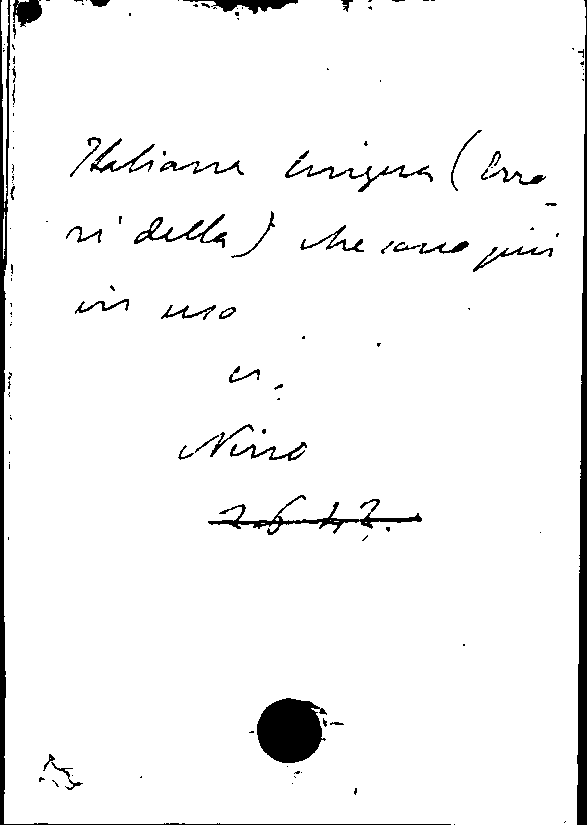 Italiana lingua (Erro-
ri della) che sono più
in uso
v.
Nino
2.6.42.